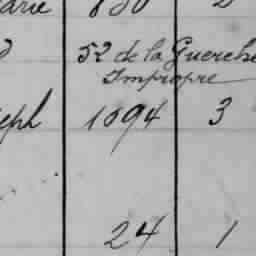 arie 880 2
52 de la Guerche
Impropre
eph 1094 3
24 1